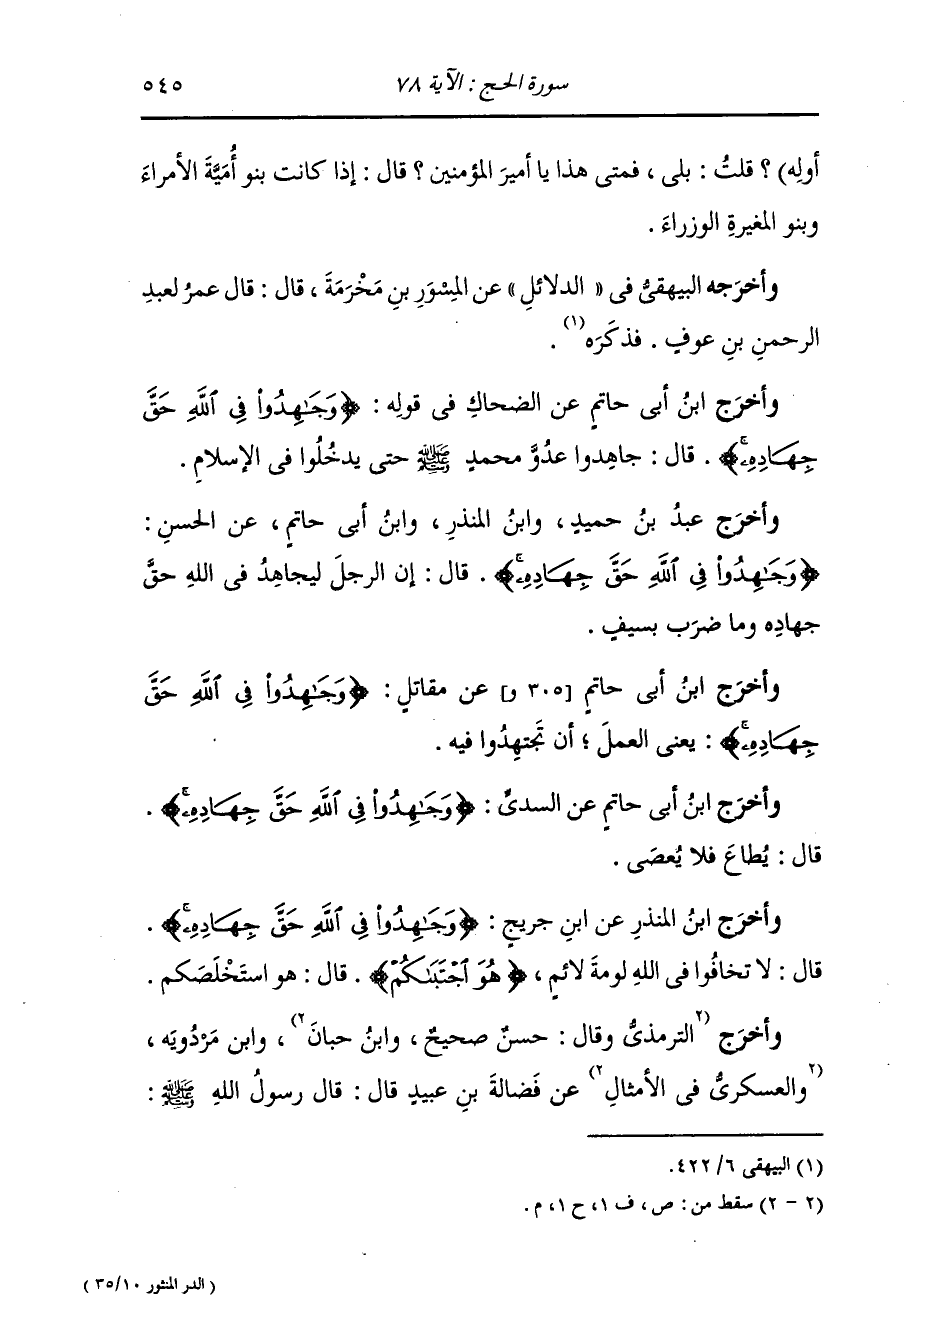 سورة الحج : الآية ٧٨ ٥٤٥
أولِه) ؟ قلتُ : بلى ، فمتى هذا يا أميرَ المؤمنين ؟ قال : إذا كانت بنو أُمَيَّةَ الأمراءَ
وبنو المغيرةِ الوزراءَ .
وأخرَجه البيهقىُّ فى « الدلائلِ » عن المِسْوَرِ بنِ مَخْرَمَةَ ، قال : قال عمرُ لعبدِ
الرحمنِ بنِ عوفٍ . فذكَرَه(١) .
وأخرَج ابنُ أبى حاتمٍ عن الضحاكِ فى قولِه : ﴿وَجَٰهِدُوا۟ فِى ٱللَّهِ حَقَّ
جِهَادِهِۦۚ﴾ . قال : جاهِدوا عدوَّ محمدٍ ﷺ حتى يدخُلُوا فى الإسلامِ .
وأخرَج عبدُ بنُ حميدٍ ، وابنُ المنذرِ ، وابنُ أبى حاتمٍ ، عن الحسنِ :
﴿وَجَٰهِدُوا۟ فِى ٱللَّهِ حَقَّ جِهَادِهِۦۚ﴾ . قال : إن الرجلَ ليجاهِدُ فى اللهِ حقَّ
جهادِه وما ضرَب بسيفٍ .
وأخرَج ابنُ أبى حاتمٍ [٣٠٥ و] عن مقاتلٍ : ﴿وَجَٰهِدُوا۟ فِى ٱللَّهِ حَقَّ
جِهَادِهِۦۚ﴾ : يعنى العملَ ؛ أن تَجتهِدُوا فيه .
وأخرَج ابنُ أبى حاتمٍ عن السدىِّ : ﴿وَجَٰهِدُوا۟ فِى ٱللَّهِ حَقَّ جِهَادِهِۦۚ﴾ .
قال : يُطاعَ فلا يُعصَى .
وأخرَج ابنُ المنذرِ عن ابنِ جريجٍ : ﴿وَجَٰهِدُوا۟ فِى ٱللَّهِ حَقَّ جِهَادِهِۦۚ﴾ .
قال : لا تخافُوا فى اللهِ لومةَ لائمٍ ، ﴿هُوَ ٱجْتَبَىٰكُمْ﴾ . قال : هو استَخْلَصَكم .
وأخرَج (٢الترمذىُّ وقال : حسنٌ صحيحٌ ، وابنُ حبانَ٢) ، وابن مَرْدُويَه ،
(٢والعسكرىُّ فى الأمثالِ٢) عن فَضالةَ بنِ عبيدٍ قال : قال رسولُ اللهِ ﷺ :
(١) البيهقى ٦/ ٤٢٢.
(٢ - ٢) سقط من : ص ، ف ١، ح ١، م .
( الدر المنثور ٣٥/١٠ )